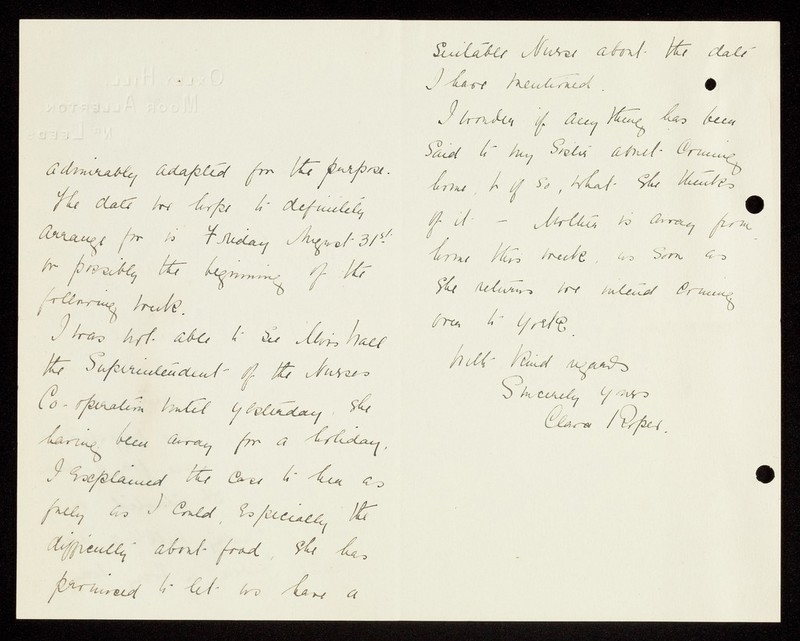 admirably adapted for the purpose.
The date we hope to definitely
arrange for is Friday August 31st
or possibly the beginning of the
following week.
I was not able to see Miss Hall
the Superintendent of the Nurses
Co-operation until yesterday. She
having been away for a holiday.
I explained the case to her as
fully as I could, especially the
difficulty about food. She has
promised to let us have a
suitable Nurse about the date
I have mentioned.
I wonder if anything has been
said to my Sister about Coming
home, & if so, what She thinks
of it – Mother is away from
home this week, as soon as
She returns we intend Coming
over to York.
With Kind regards
Sincerely yours
Clara Roper.